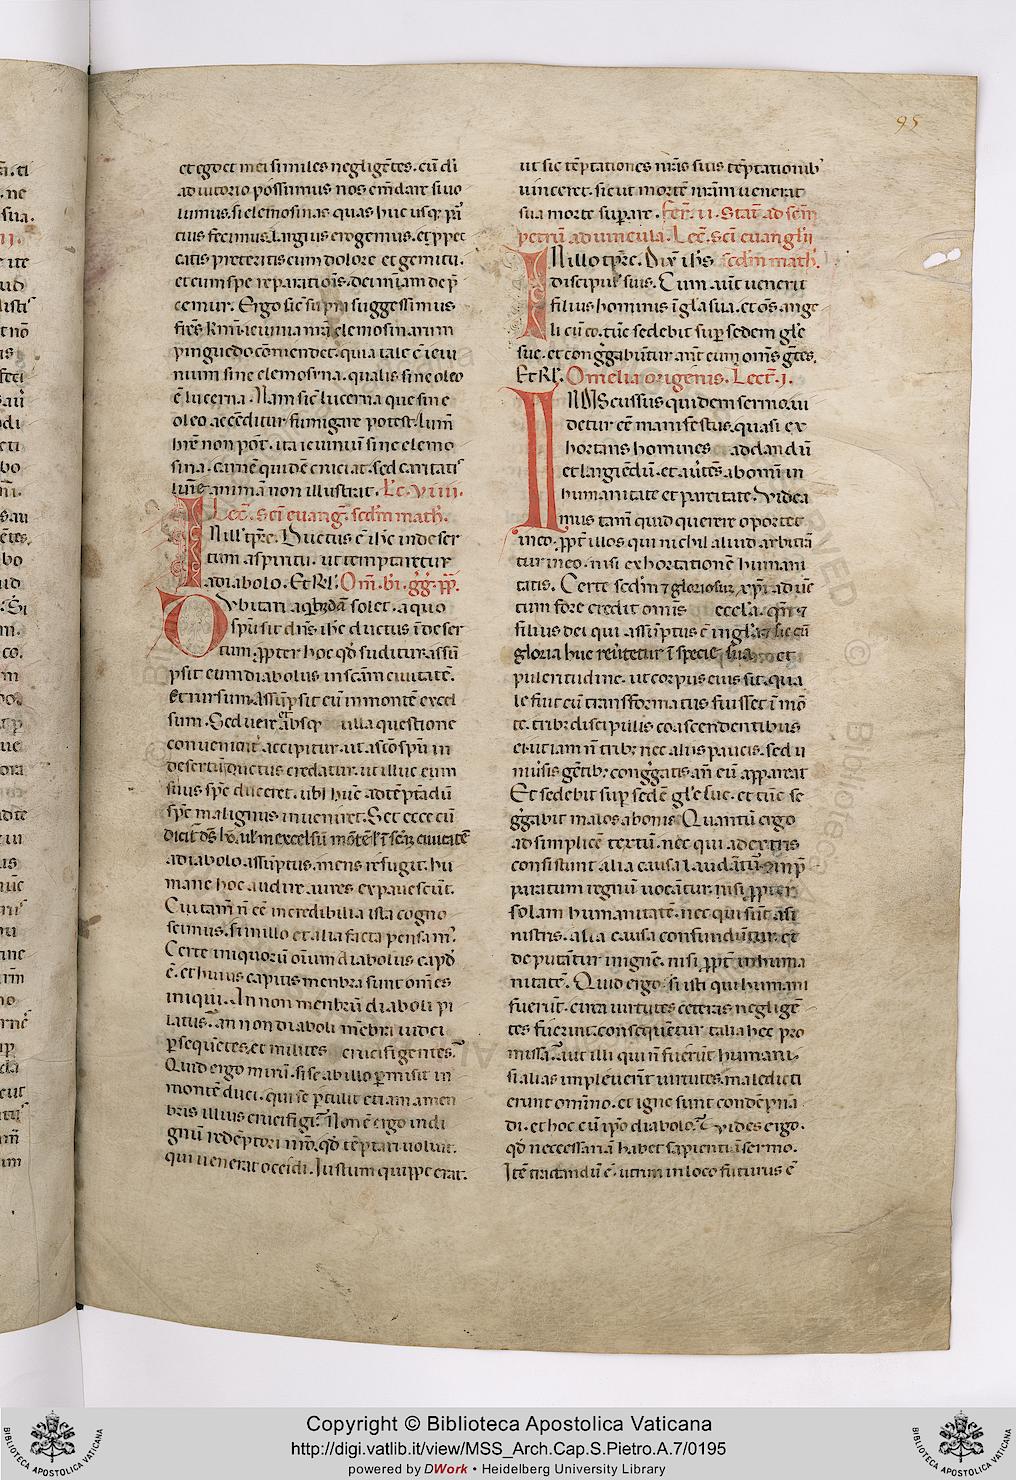 95
et egoet mei similes negligētes. cū dī
adiutorio possimus nos em̄dare si uo
lumus. si elemosinas quas huc usq; par
cius fecimus. largius erogemus. et ppec
catis preteritis cum dolore et gemitu.
et cum spe reparationis. dei mīam de p
cemur. Ergo sic supra suggessimus
frēs kmī. ieiunia nrā elemosinarum
pinguedo cōmendet. quia tale ē ieiu
nium sine elemosyna. qualis sine oleo
ē lucerna. Nam sic lucerna que sine
oleo accēditur fumigare potest. lum̄
hrē non pōt. ita ieiuniū sine elemo
sina. carnē quidē cruciat. sed caritatis
lum̄e animā non illustrat. Lc. viiii.
Lec. scī euang. sedm math.
In ill' tpre. Ductus ē ihc in deser
tum a spiritu. ut temptaretur
a diabolo. Et Rł. Om̄. bī. gg. pp.
Dubitari a qbdā solet. a quo
spū sit dns ihc ductus ī deser
tum. ppter hoc qd subditur. assū
psit eum diabolus in scām ciuitatē.
Et rursum. Assūpsit eū in montē excel
sum. Sed uere absq ulla questione
conuenient accipitur. ut a scō spū in
desertū ductus credatur. ut illuc eum
suus spc duceret. ubi hūc ad tēptādū
spc malignus inueniret. Set ecce cū
dicit ds hō. uł in excelsū mōtē ł ī scam ciuitatē
a diabolo assūptus. mens refugit. hu
mane hoc audire aures expauescūt.
Cui tam̄ n̄ ēē incredibilia ista cogno
scimus. si in illo et alia facta pensam'.
Certe iniquorū oīum diabolus capd
ē. et huius capitis menbra sunt om̄es
iniqui. An non menbrū diaboli pi
latus. an non diaboli mēbri iudei
psequētes. et milites crucifigentes.
Quid ergo mirū. si se ab illo pmisit in
montē duci. qui se ptulit etiam a men
bris illius crucifigi. Non ē ergo indi
gnū redēptori nrō. qd tēptari uoluit.
qui uenerat occidi. Iustum quippe erat.
ut sic tēptationes nrās suis tēptationib'
uinceret. sicut mortē nrām uenerat
sua morte supare. fer. ii. Stat ad scm
petrū ad uincula. Lec. scī euanglii
In illo tpre. Dix ihs sedm math.
discipul' suis. Cum aūt uenerit
filius hominis ī gła sua. et om̄s ange
li eū eo. tūc sedebit sup sedem głe
sue. et conggabūtur ant eum om̄s gtes.
Et Rł. Omelia origenis. Lect. i.
In discussus quidem sermo. ui
detur ēē manifestus. quasi ex
hortans homines ad dandū
et largiēdū. et auertēs ab omni in
humanitate et parcitate. Videa
mus tam̄ quid querere oportet
in eo. ppt illos qui nichil aliud arbitrā
tur in eo. nisi exhortationē humani
tatis. Certe sedm gloriosū xpi aduē
tum fore credit omīs eccła. qm
filius dei qui assūptus ē in głā. sic cū
gloria huc reuertetur ī specie sua et
pulcritudine. ut corpus eius sit. qua
le fuit cū transformatus fuisset ī mō
te. trib; discipulis coascendentibus
ei. ut iam n̄ trib; nec aliis paucis. sed u
niūsis gētib; conggatis an eū appareat
Et sedebit sup sedē głe sue. et tūc se
ggabit malos a bonis. Quantū ergo
ad simplicē textū. nec qui ad extris
consistunt alia causa laudātur. in p
paratum regnū uocātur. nisi ppter
solam humanitatē. nec qui sūt a si
nistris. alia causa confundūtur. et
deputātur in ignē. nisi ppt inhuma
nitatē. Quid ergo. si isti qui humani
fuerūt. circa uirtutes ceteras negligē
tes fuerunt. consequētur talia hec pro
missa. aut illi qui n̄ fuerūt humani.
si alias impleuerīt uirtutes. maledicti
erunt omīno. et igne sunt condēpna
di. et hoc cū ipso diabolo. Vides ergo.
qd necessariā habet sapientiā sermo.
Itē tractandū ē. utrum in loco futurus ē
Copyright © Biblioteca Apostolica Vaticana
http://digi.vatlib.it/view/MSS_Arch.Cap.S.Pietro.A.7/0195
powered by DWork • Heidelberg University Library